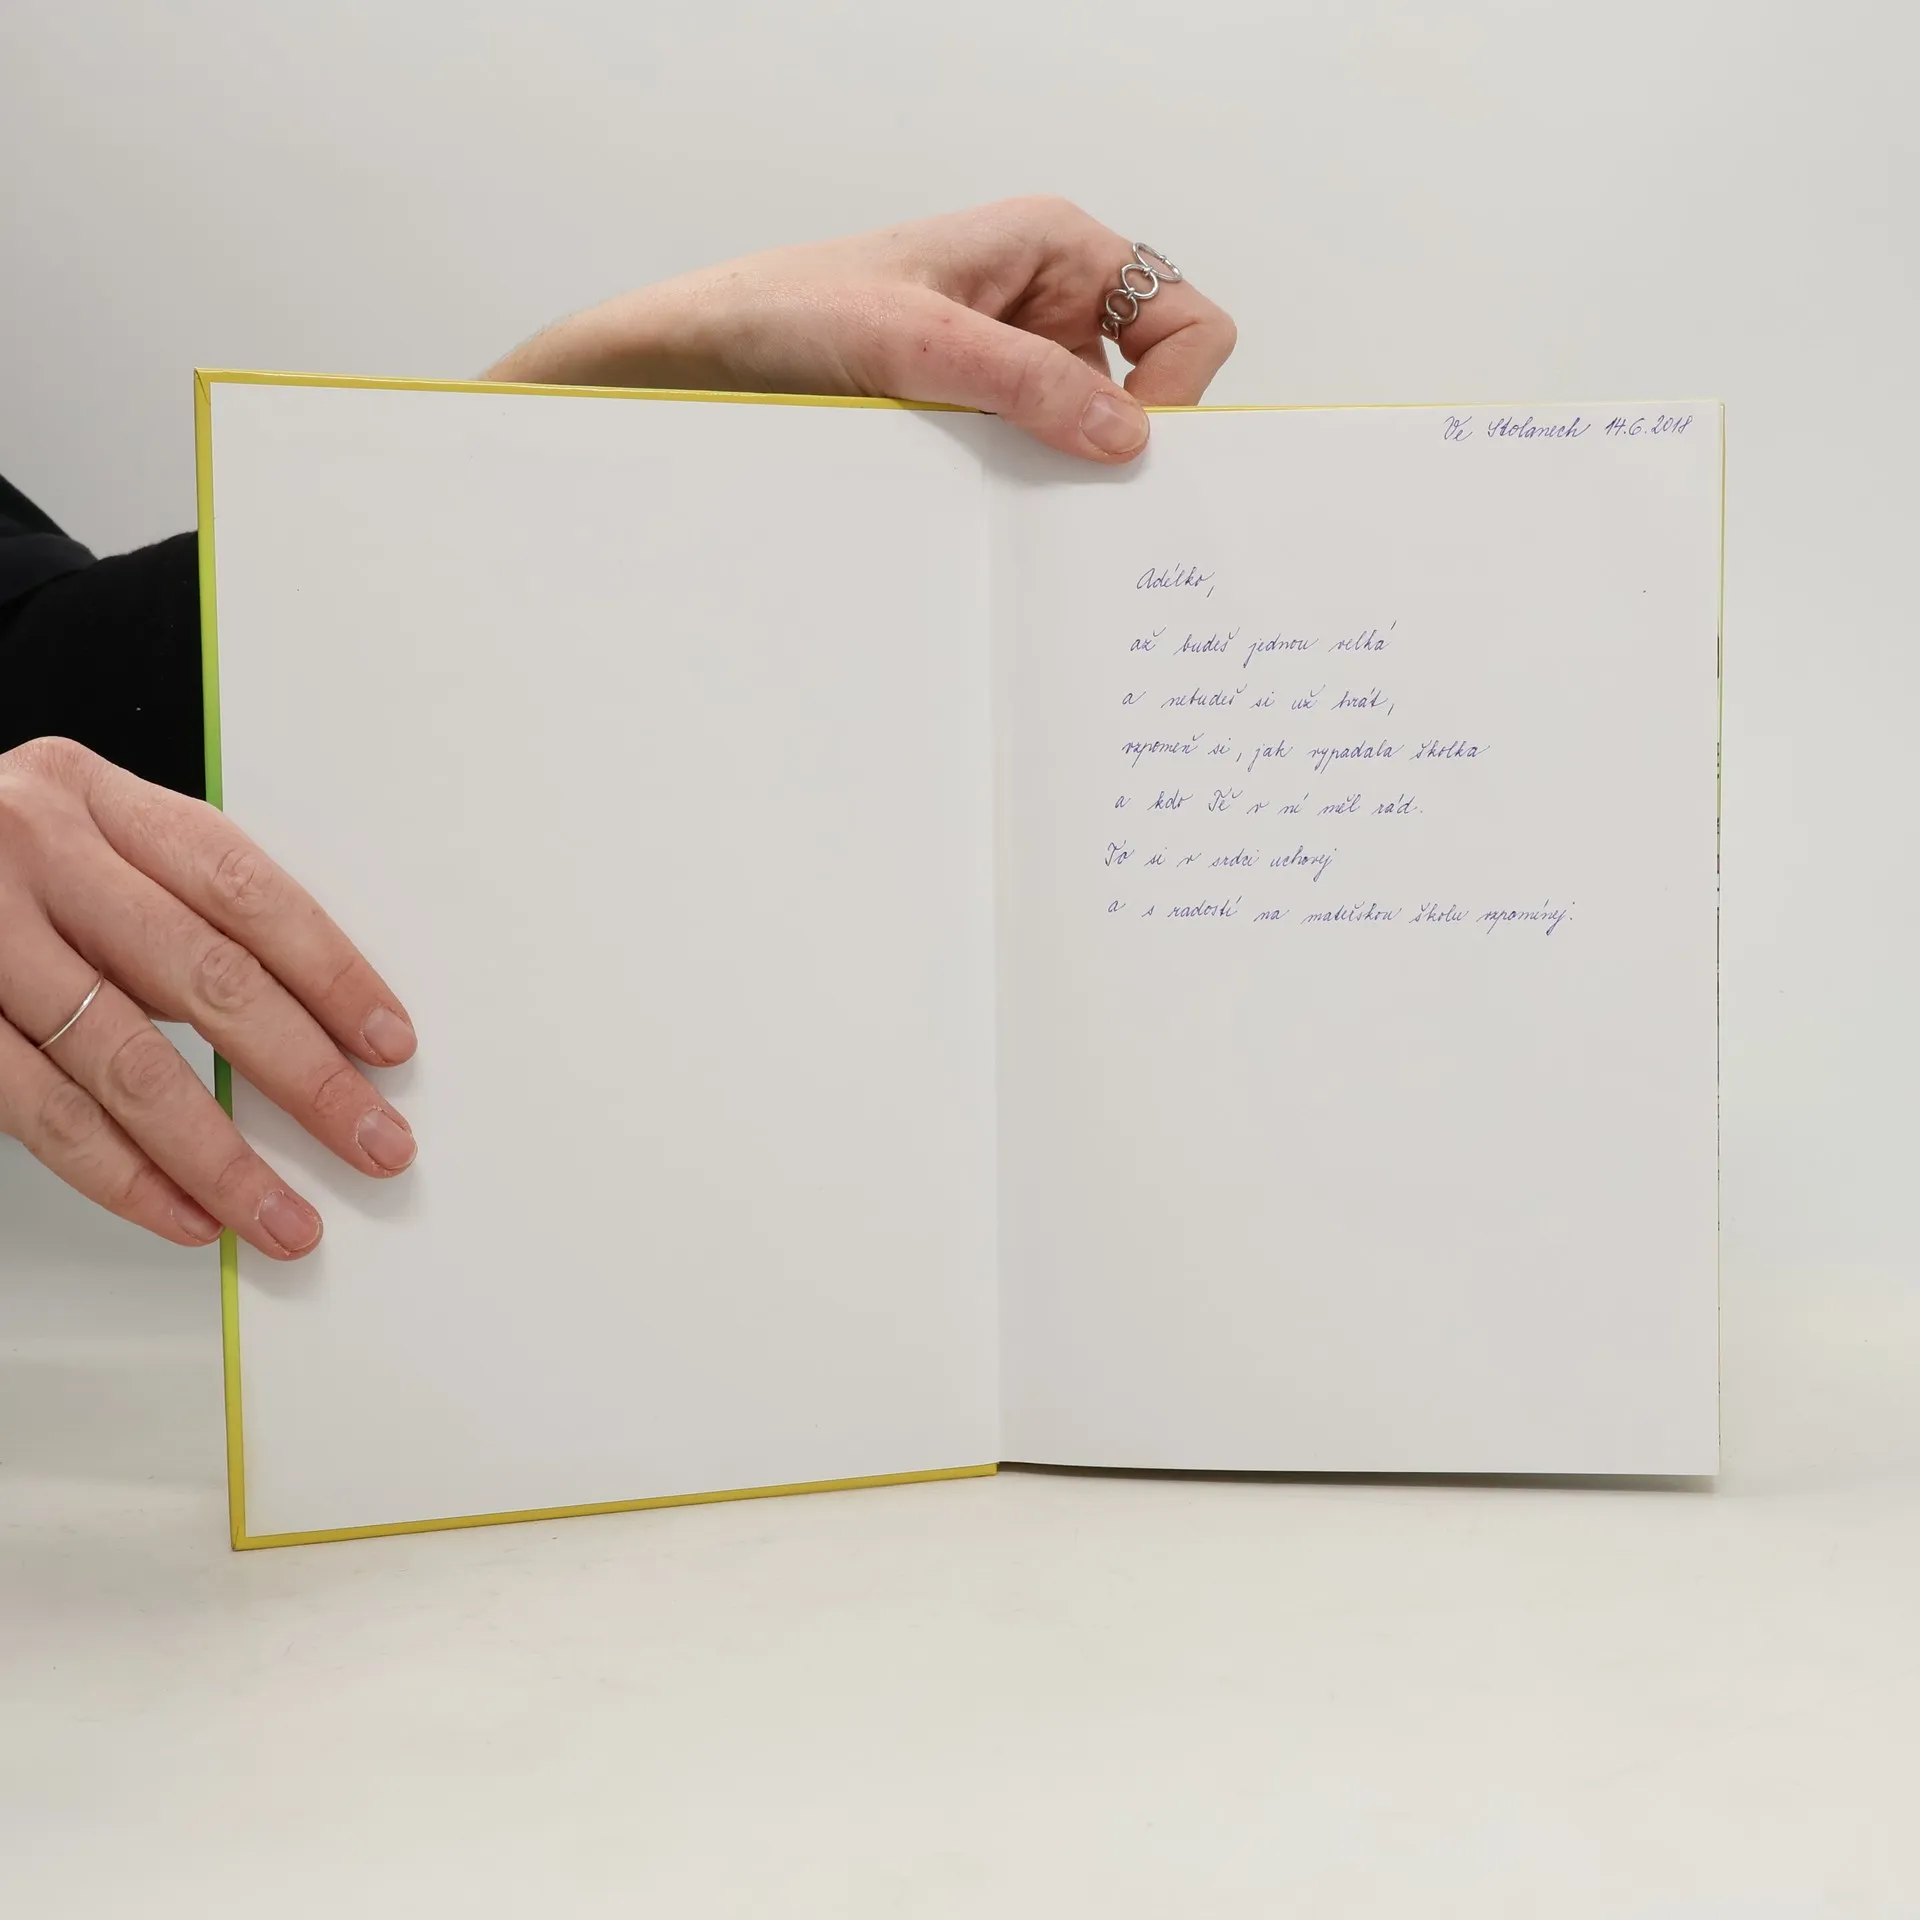 Ve Stolanech 14.6.2018
Adélko,
až budeš jednou velká
a nebudeš si už hrát,
vzpomeň si, jak vypadala školka
a kdo Tě v ní měl rád.
To si v srdci uchovej
a s radostí na mateřskou školu vzpomínej.